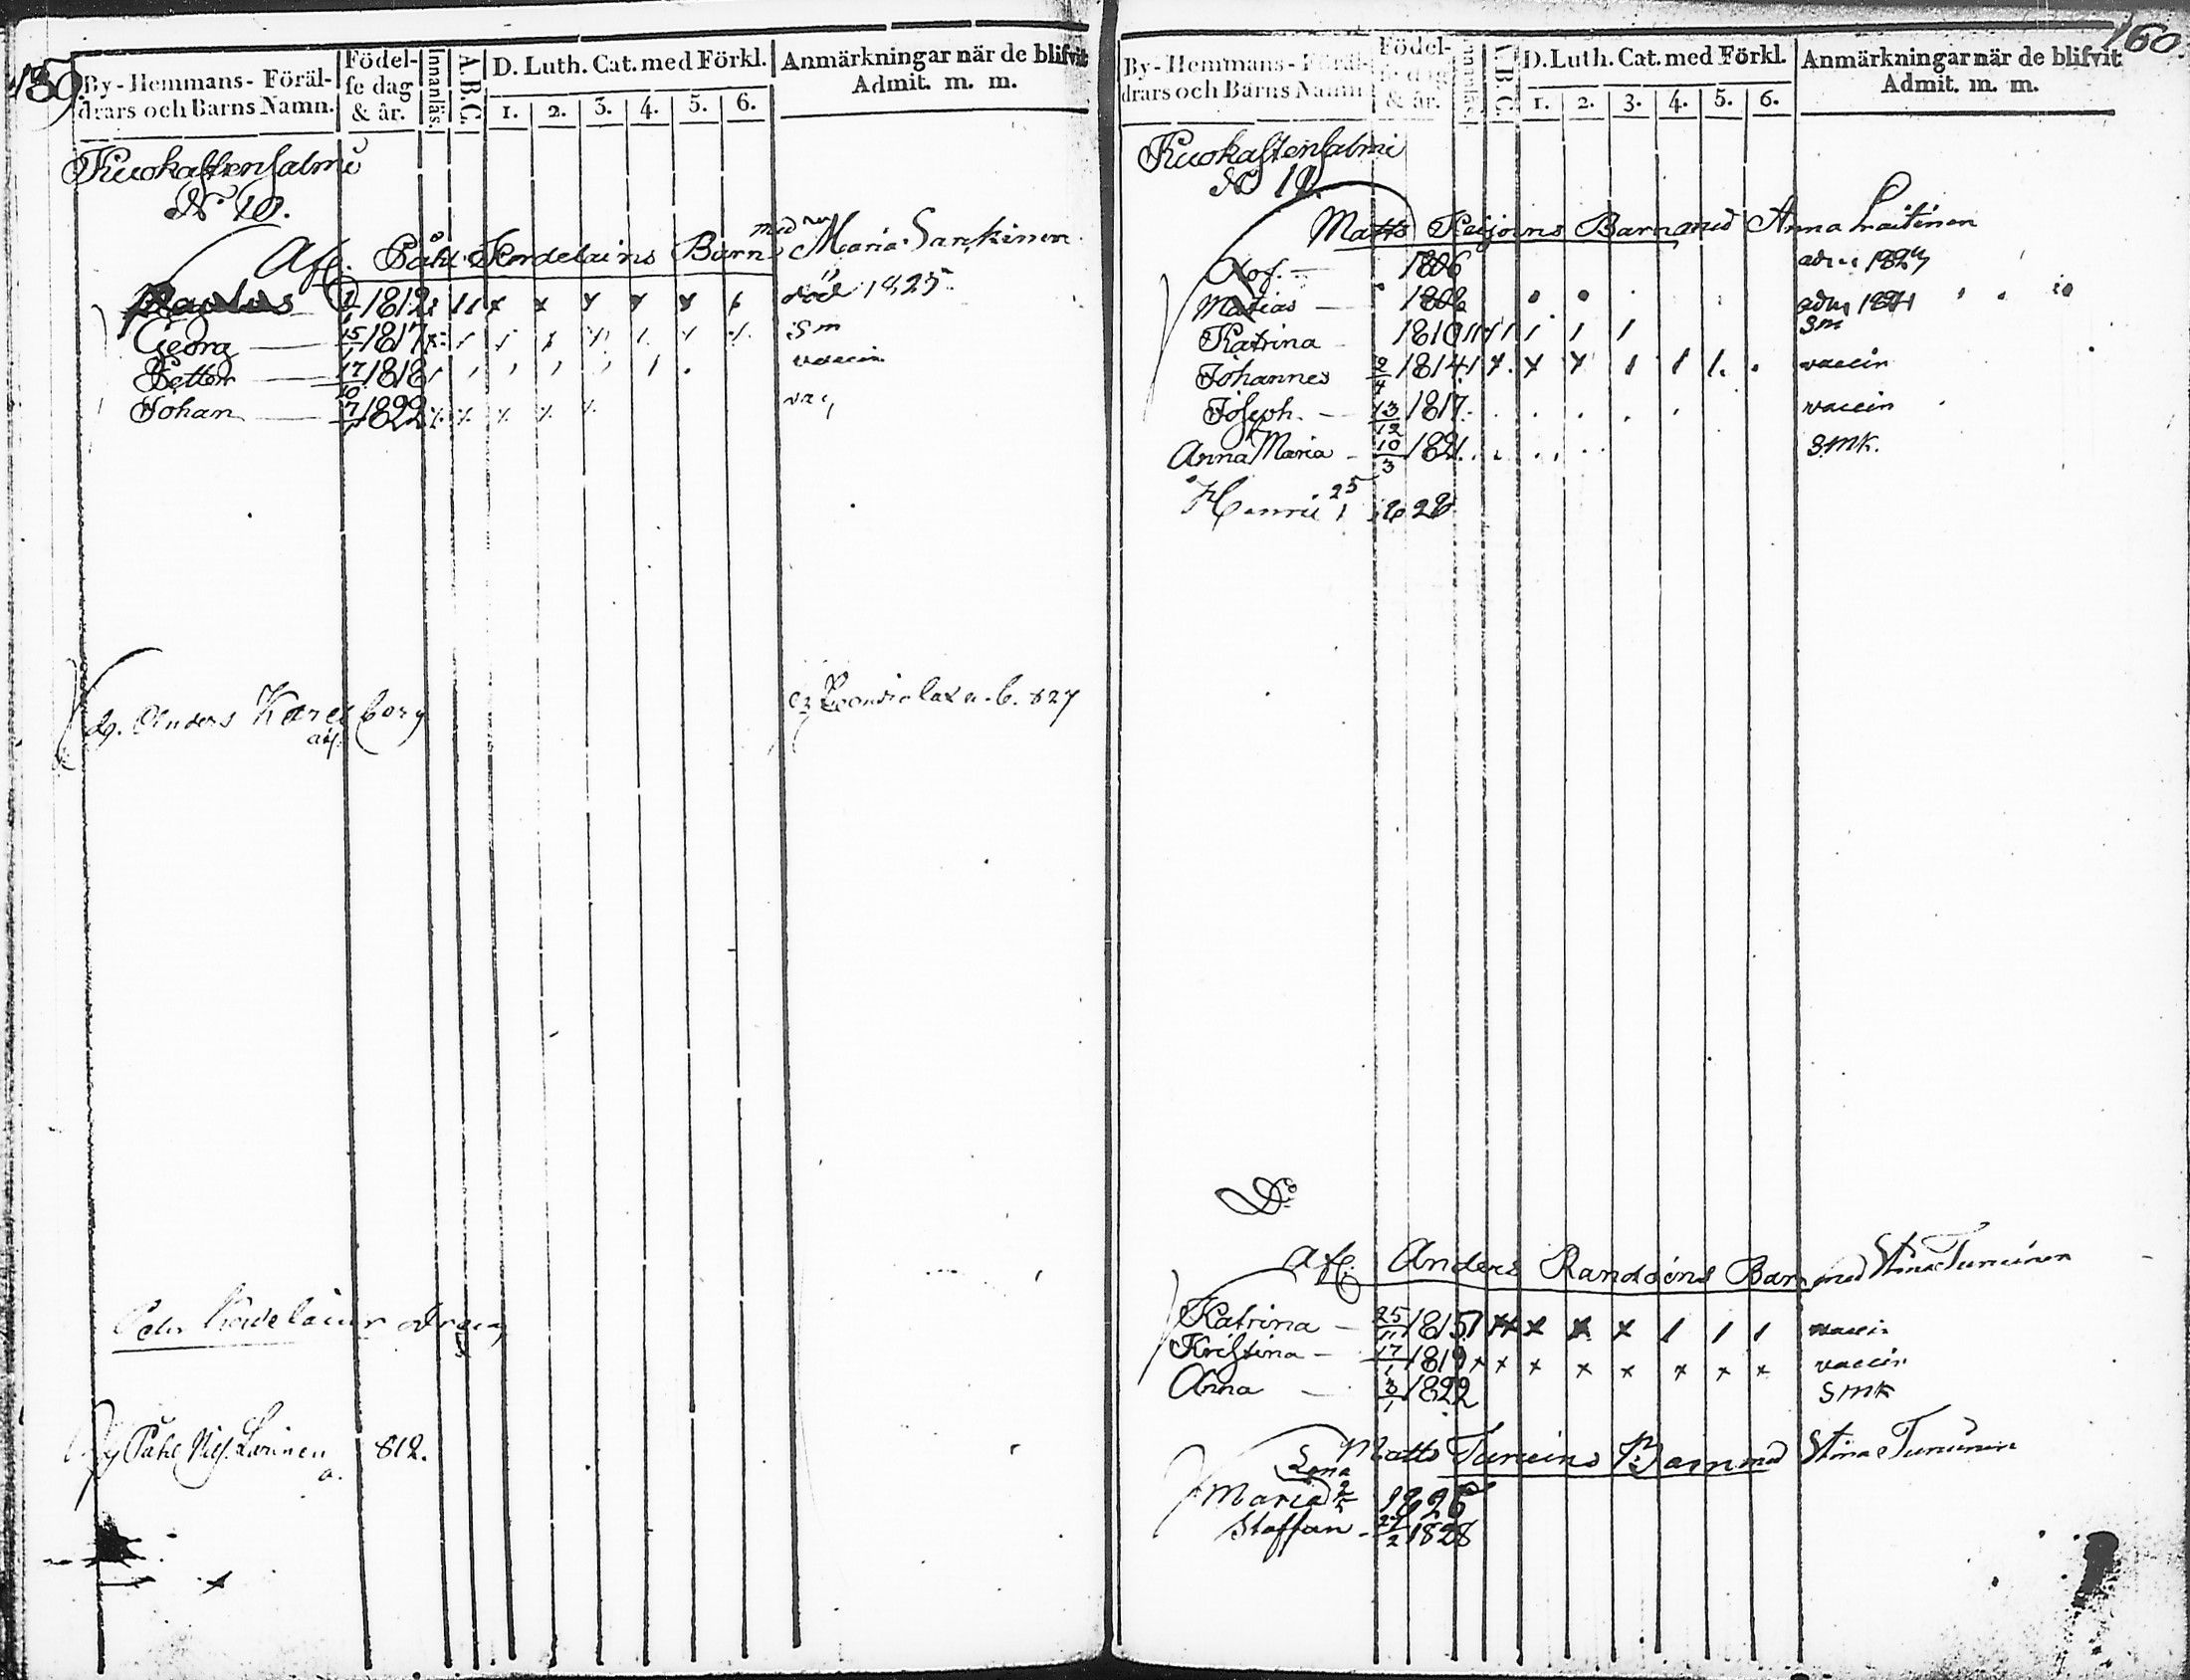 159
By-Hemmans-Föräl-
drars och Barns Namn.
Födel-
se dag
& år.
Innanläs.
A.B.C.
D. Luth. Cat. med Förkl.
1. 2. 3. 4. 5. 6.
Anmärkningar när de blifvit
Admit. m. m.
Kuokastensalmi
No 10.
Afl. Påhl Kordelains Barn med Maria Sarkinen
Paulus 1812 död 1825
Georg 15/1 1817 Sm
Petter 17/10 1818 vaccin
Johan 7/1 1822 vac
Anders Karelborg
827
Påhl Nils. Lorinen 812.
160
By-Hemmans-Föräl-
drars och Barns Namn
Födel-
se dag
& år.
Innanläs.
A.B.C.
D. Luth. Cat. med Förkl.
1. 2. 3. 4. 5. 6.
Anmärkningar när de blifvit
Admit. m. m.
Kuokastensalmi
No
Matts Reijoins Barn med Anna Laitinen
1806
Matias 180
Katrina 1810 Sm
Johannes 2/4 1814 vaccin
Joseph 13/12 1817 vaccin
Anna Maria 10/3 1821 SmK.
Henric 25/1
Do
Afl. Anders Randoins Barn med Stina Turuinen
Katrina 25/11 1815 vaccin
Kristina 17/1 1819 vaccin
Anna 3/1 1822 SmK
Matts Turuins Barn med Stina Turuinen
Maria
Staffan 1828